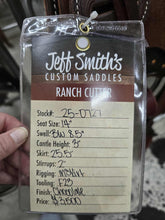 Jeff Smith's
CUSTOM SADDLES
RANCH CUTTER
Stock#: 25-0727
Seat Size: 14"
Swell: BW 8.5"
Cantle Height: 3"
Skirt: 25.5"
Stirrups: 2"
Rigging: INSKIRT
Tooling: F23
Finish: Chocolate
Price: $3,600